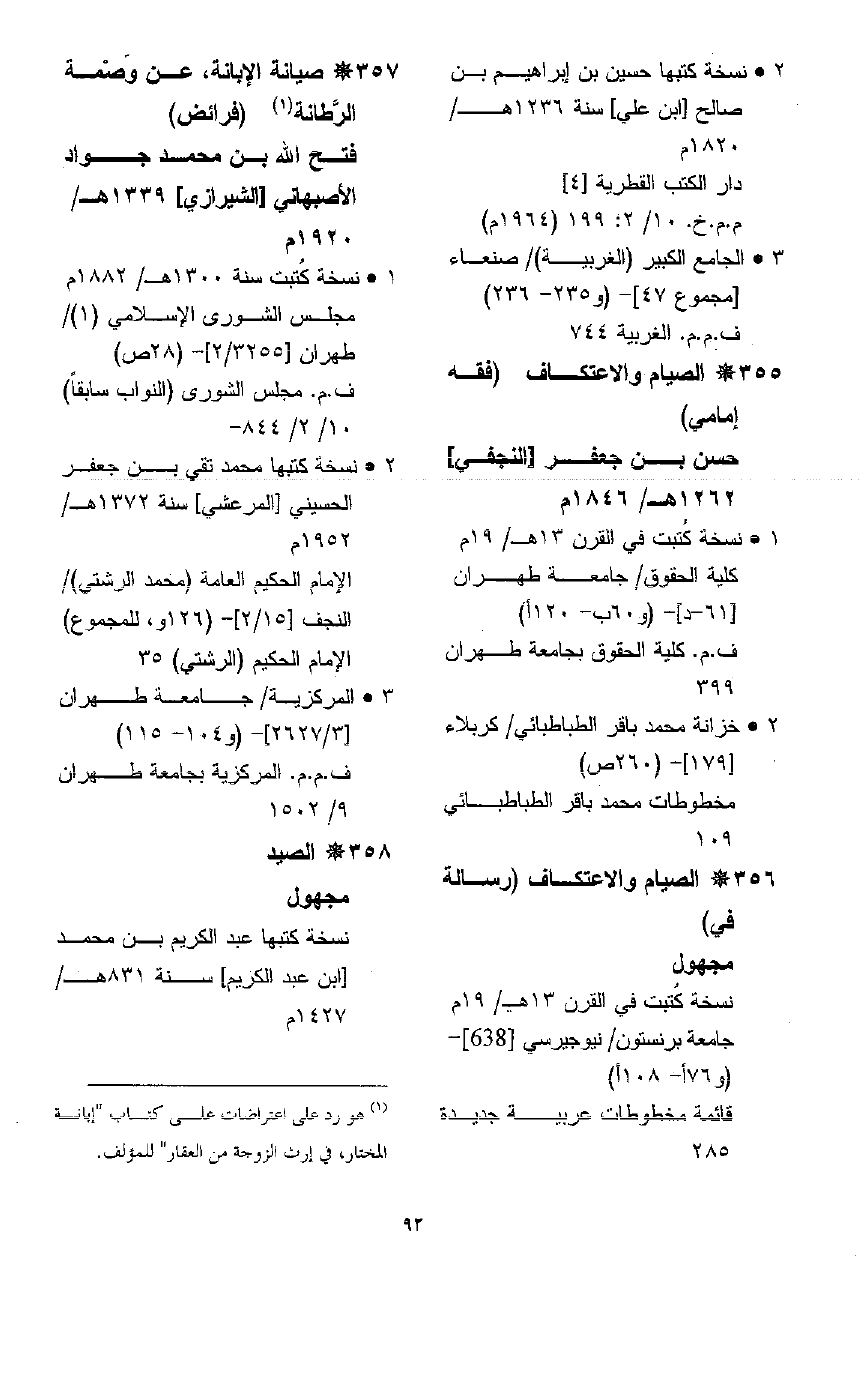 ٢ • نسخة كتبها حسين بن إبراهيم بن
صالح [ابن علي] سنة ١٢٣٦هـ/
١٨٢٠م
دار الكتب القطرية [٤]
م.م.خ. ١٠/ ٢: ١٩٩ (١٩٦٤م)
٣ • الجامع الكبير (الغربية)/ صنعاء
[مجموع ٤٧]– (و٢٣٥– ٢٣٦)
ف.م.م. الغربية ٧٤٤
٣٥٥❋ الصيام والاعتكاف (فقه
إمامي)
حسن بن جعفر [النجفي]
١٢٦٢هـ/ ١٨٤٦م
١ • نسخة كُتبت في القرن ١٣هـ/ ١٩م
كلية الحقوق/ جامعة طهران
[٦١–د]– (و٦٠ب– ١٢٠أ)
ف.م. كلية الحقوق بجامعة طهران
٣٩٩
٢ • خزانة محمد باقر الطباطبائي/ كربلاء
[١٧٩]– (٢٦٠ص)
مخطوطات محمد باقر الطباطبائي
١٠٩
٣٥٦❋ الصيام والاعتكاف (رسالة
في)
مجهول
نسخة كُتبت في القرن ١٣هـ/ ١٩م
جامعة برنستون/ نيوجيرسي [638]–
(و٧٦أ– ١٠٨أ)
قائمة مخطوطات عربية جديدة
٢٨٥
٣٥٧❋ صيانة الإبانة، عن وَصْمة
الرَّطانة(١) (فرائض)
فتح الله بن محمد جواد
الأصبهاني [الشيرازي] ١٣٣٩هـ/
١٩٢٠م
١ • نسخة كُتبت سنة ١٣٠٠هـ/ ١٨٨٢م
مجلس الشورى الإسلامي (١)/
طهران [٢/٣٢٥٥]– (٢٨ص)
ف.م. مجلس الشورى (النواب سابقاً)
١٠/ ٢/ ٨٤٤–
٢ • نسخة كتبها محمد تقي بن جعفر
الحسيني [المرعشي] سنة ١٣٧٢هـ/
١٩٥٢م
الإمام الحكيم العامة (محمد الرشتي)/
النجف [٢/١٥]– (١٢٦و، للمجموع)
الإمام الحكيم (الرشتي) ٣٥
٣ • المركزية/ جامعة طهران
[٢٦٢٧/٣]– (و١٠٤– ١١٥)
ف.م.م. المركزية بجامعة طهران
٩/ ١٥٠٢
٣٥٨❋ الصيد
مجهول
نسخة كتبها عبد الكريم بن محمد
[ابن عبد الكريم] سنة ٨٣١هـ/
١٤٢٧م
(١) هو رد على اعتراضات على كتاب "إبانة
المختار، في إرث الزوجة من العقار" للمؤلف.
٩٢